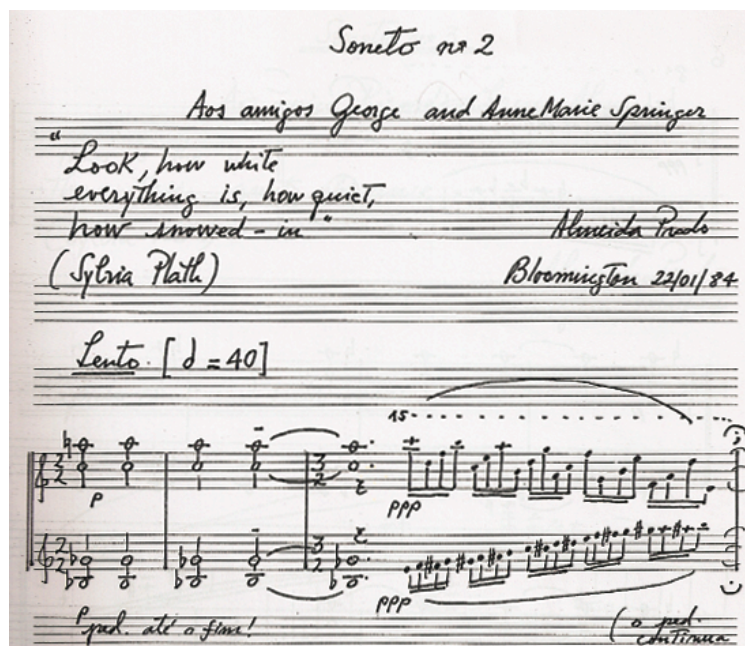 Soneto nº 2
Aos amigos George and AnneMarie Springer
"Look, how white
everything is, how quiet,
how snowed-in"
Almeida Prado
(Sylvia Plath)
Bloomington 22/01/84
Lento. [𝅗𝅥 = 40]
15
2 2 3 2
p
ppp
2 2 3 2
ppp
p
ped. até o fim!
(o ped.
continua